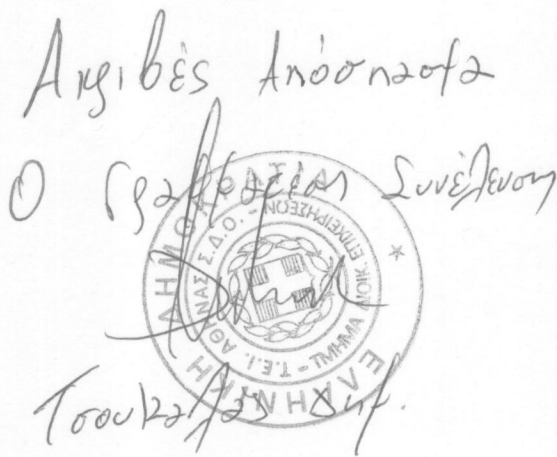 Ακριβές Απόσπασμα
Ο Γραμματέας Συνέλευσης
ΕΛΛΗΝΙΚΗ ΔΗΜΟΚΡΑΤΙΑ
Τ.Ε.Ι. ΑΘΗΝΑΣ Σ.Δ.Ο. - ΤΜΗΜΑ ΔΙΟΙΚ. ΕΠΙΧΕΙΡΗΣΕΩΝ
Τσουκαλάς Δημ.